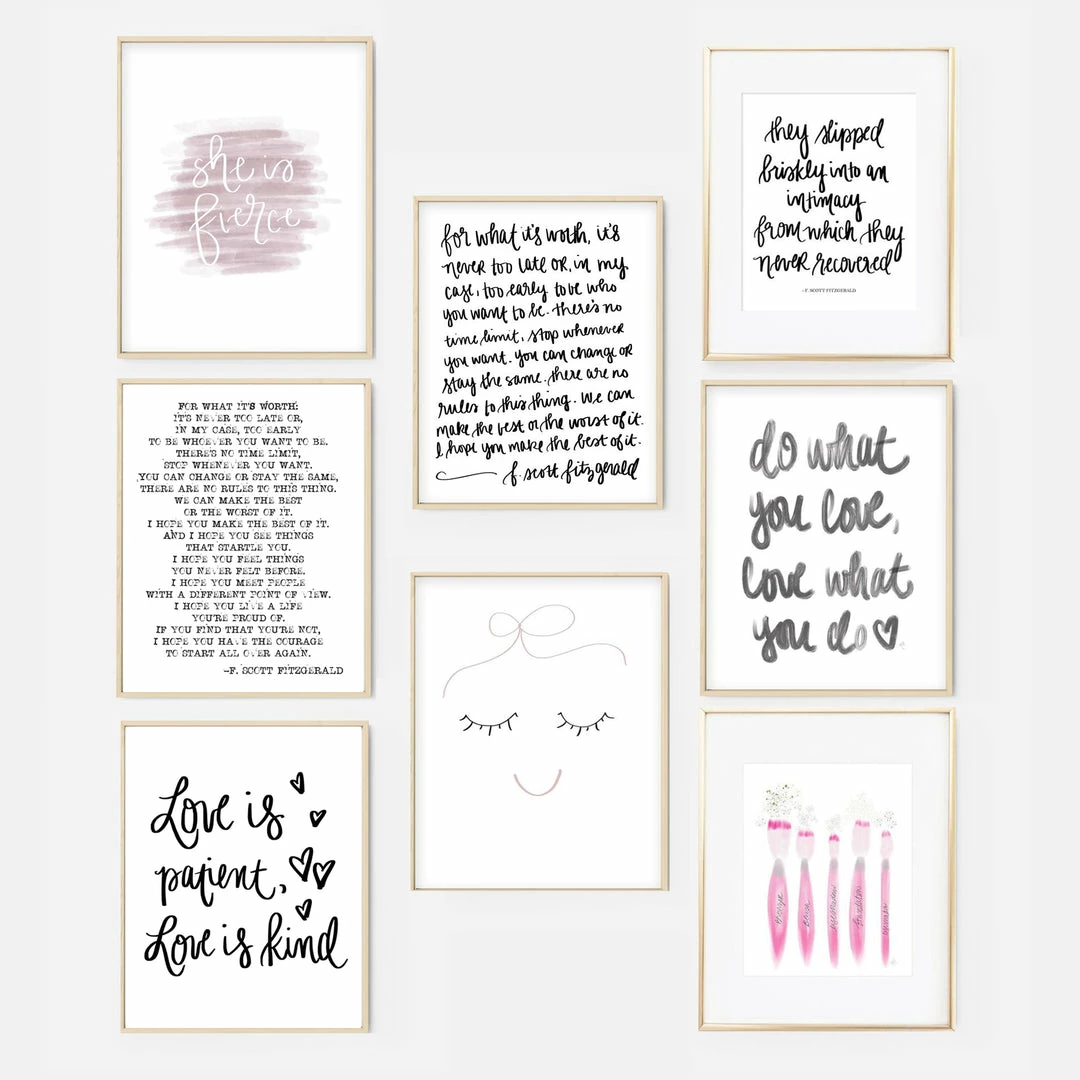 she is
fierce
for what it's worth, it's
never too late or, in my
case, too early to be who
you want to be. there's no
time limit, stop whenever
you want. you can change or
stay the same. there are no
rules to this thing. we can
make the best or the worst of it.
I hope you make the best of it.
f. scott fitzgerald
they slipped
briskly into an
intimacy
from which they
never recovered
- F. SCOTT FITZGERALD
FOR WHAT IT'S WORTH:
IT'S NEVER TOO LATE OR,
IN MY CASE, TOO EARLY
TO BE WHOEVER YOU WANT TO BE.
THERE'S NO TIME LIMIT,
STOP WHENEVER YOU WANT.
YOU CAN CHANGE OR STAY THE SAME,
THERE ARE NO RULES TO THIS THING.
WE CAN MAKE THE BEST
OR THE WORST OF IT.
I HOPE YOU MAKE THE BEST OF IT.
AND I HOPE YOU SEE THINGS
THAT STARTLE YOU.
I HOPE YOU FEEL THINGS
YOU NEVER FELT BEFORE.
I HOPE YOU MEET PEOPLE
WITH A DIFFERENT POINT OF VIEW.
I HOPE YOU LIVE A LIFE
YOU'RE PROUD OF.
IF YOU FIND THAT YOU'RE NOT,
I HOPE YOU HAVE THE COURAGE
TO START ALL OVER AGAIN.
-F. SCOTT FITZGERALD
do what
you love,
love what
you do
Love is
patient,
Love is kind
bronzer
blush
eyeshadow
foundation